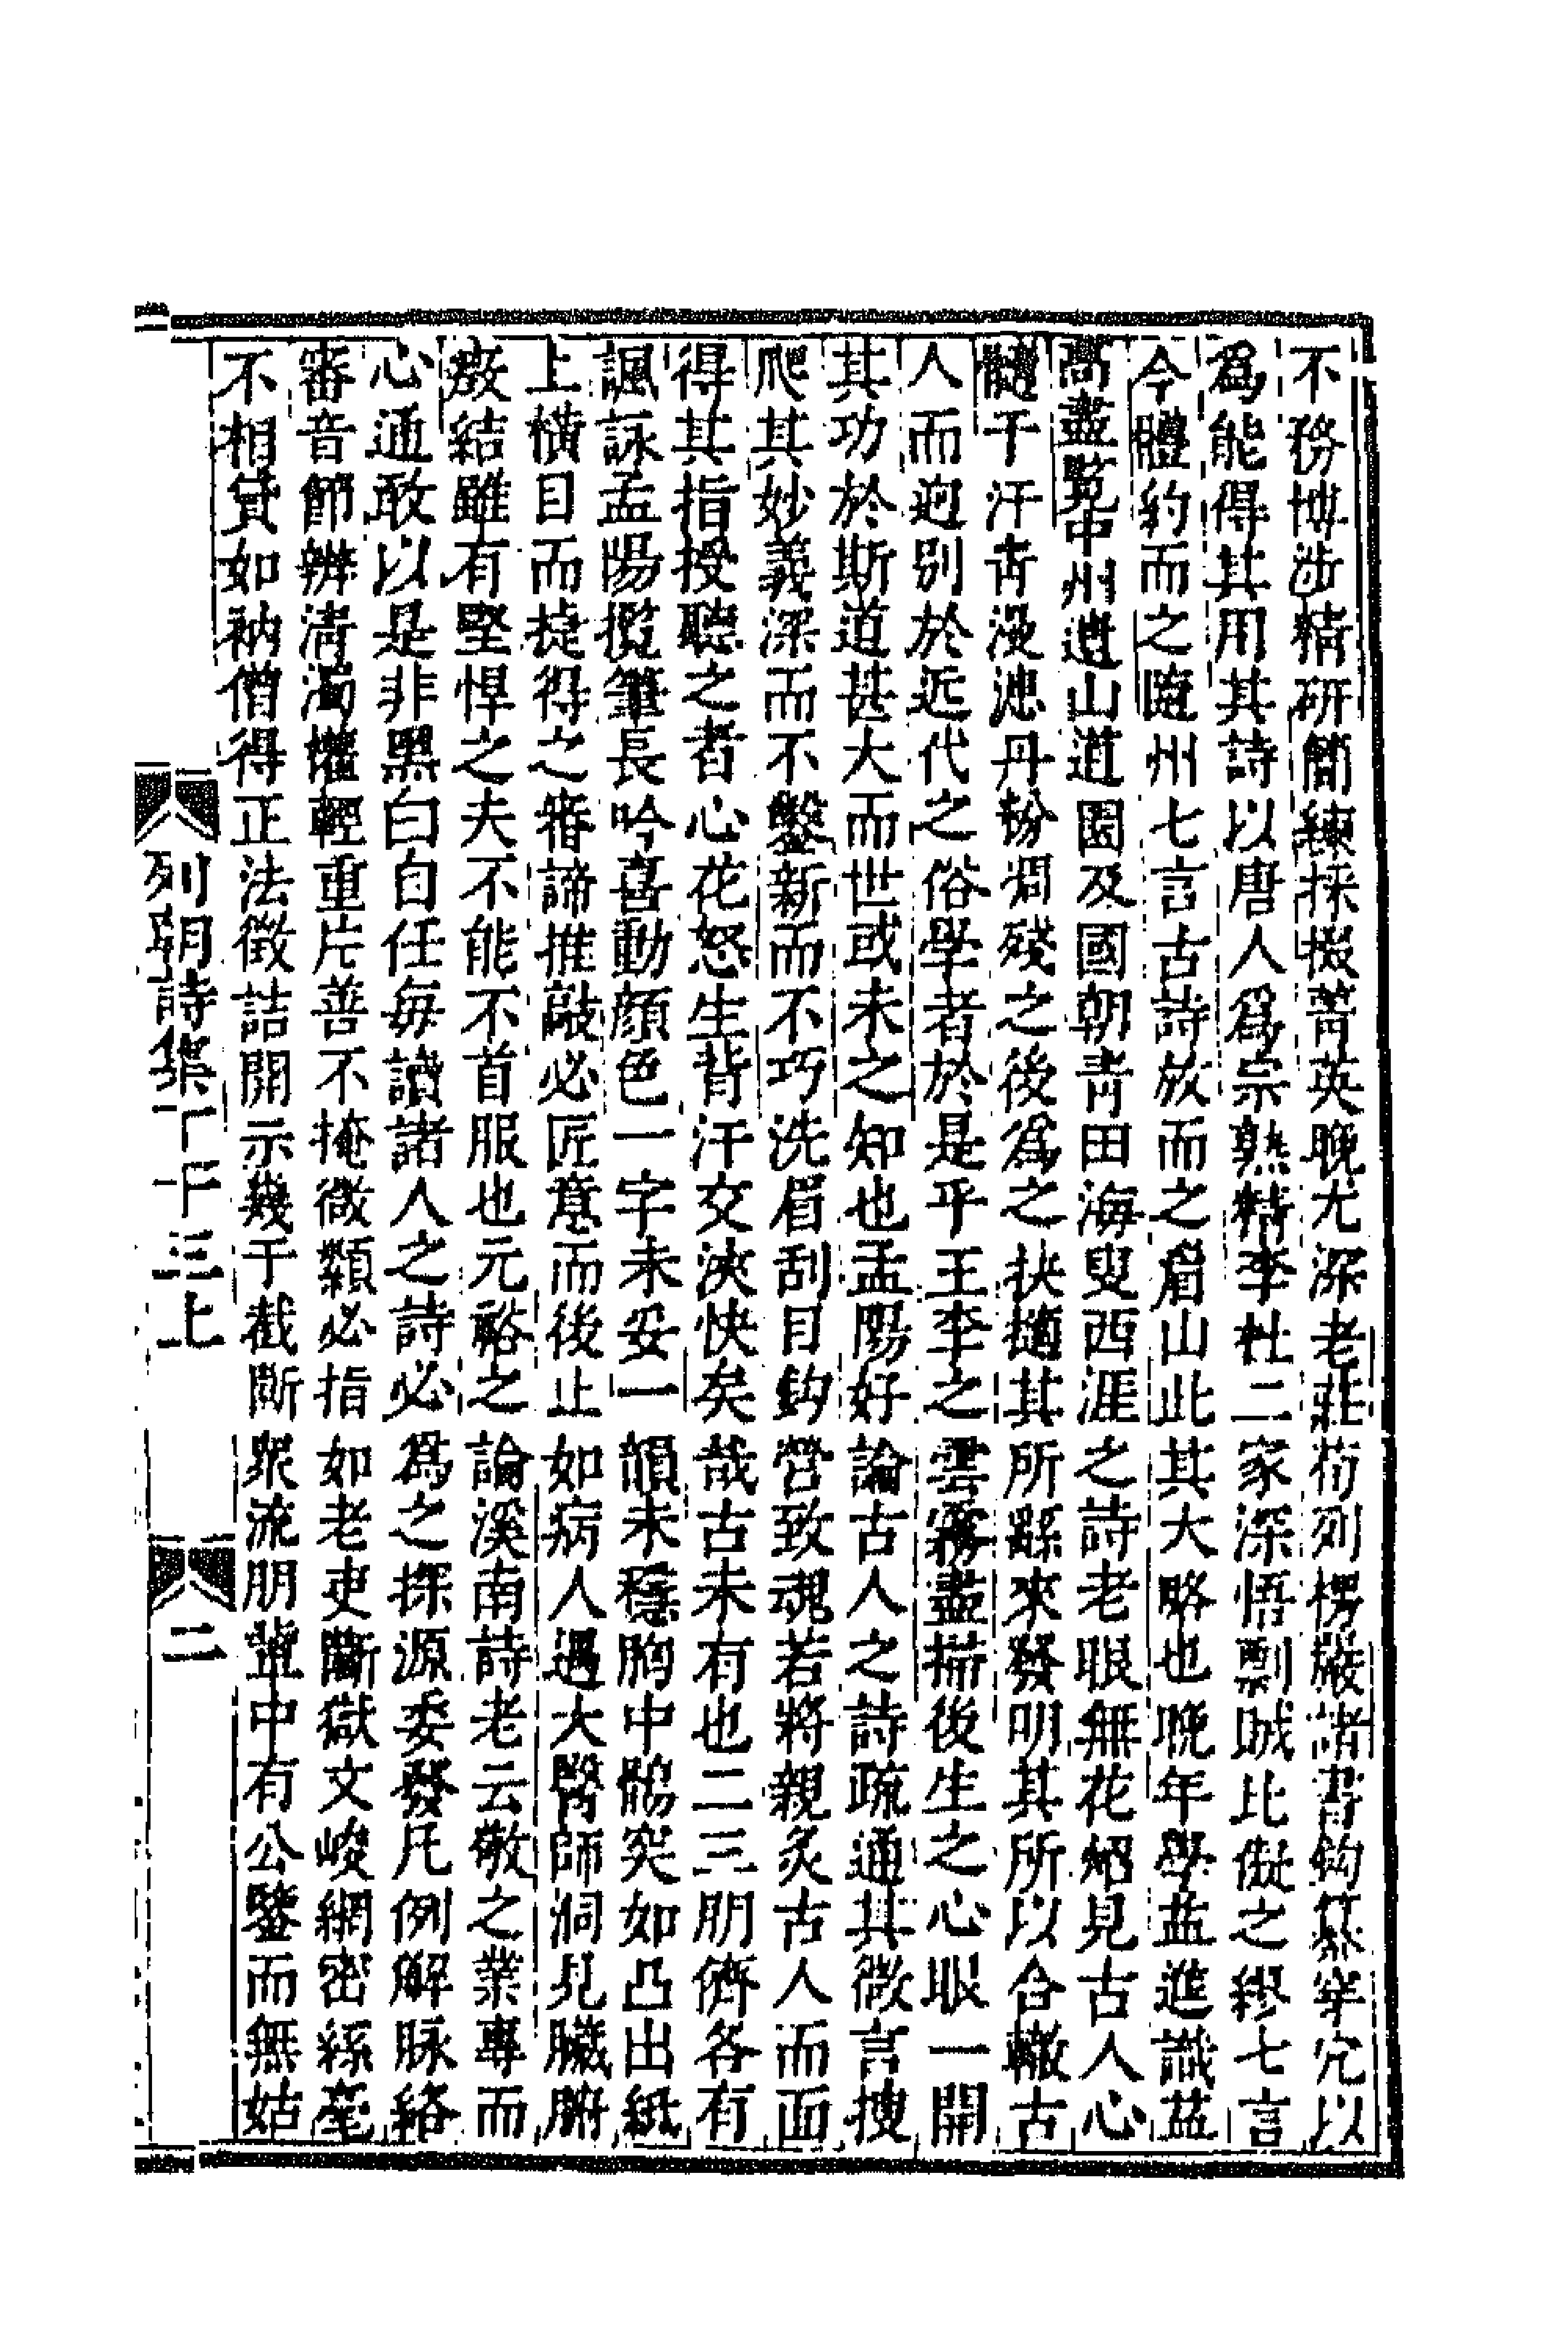 不務博涉精研簡練採掇菁英晚尤深老莊荀列楞嚴諸書鈎纂穿穴以
爲能得其用其詩以唐人爲宗熟精李杜二家深悟剽賊比儗之繆七言
今體約而之隨州七言古詩放而之眉山此其大略也晚年學益進識益
高盡覽中州遺山道園及國朝青田海叟西涯之詩老眼無花炤見古人心
髓于汗青漫漶丹粉凋殘之後爲之抉擿其所繇來發明其所以合轍古
人而迥別於近代之俗學者於是乎王李之雲霧盡掃後生之心眼一開
其功於斯道甚大而世或未之知也孟陽好論古人之詩疏通其微言搜
爬其妙義深而不鑿新而不巧洗眉刮目鈎營致魂若將親炙古人而面
得其指授聽之者心花怒生背汗交浹快矣哉古未有也二三朋儕各有
諷詠孟陽攬筆長吟喜動顏色一字未妥一韻未穩胸中鶻突如凸出紙
上橫目而捷得之審諦推敲必匠意而後止如病人遇大醫師洞見臟腑
癥結雖有堅悍之夫不能不首服也元裕之論溪南詩老云敬之業專而
心通敢以是非黑白自任每讀諸人之詩必爲之探源委發凡例解脉絡
審音節辨清濁權輕重片善不掩微纇必指如老吏斷獄文峻網密絲毫
不相貸如衲僧得正法徵詰開示幾于截斷衆流朋輩中有公鑒而無姑
列朝詩集丁十三上
二